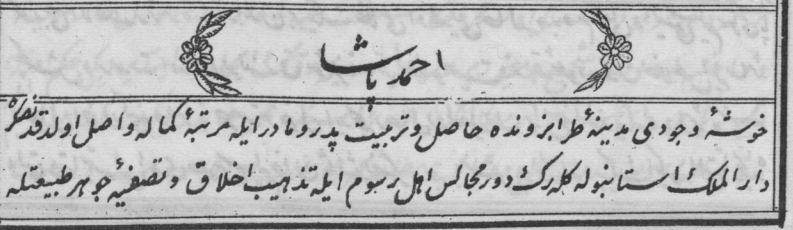 احمد پاشا
خوشهٔ وجودی مدینهٔ طرابزونده حاصل و تربیت پدر و مادر ایله مرتبهٔ کماله واصل اولدقدنصکره
دار الملک استانبوله کله‌رک دور مجالس اهل رسوم ایله تذهیب اخلاق و تصفیهٔ جوهر طبیعتله